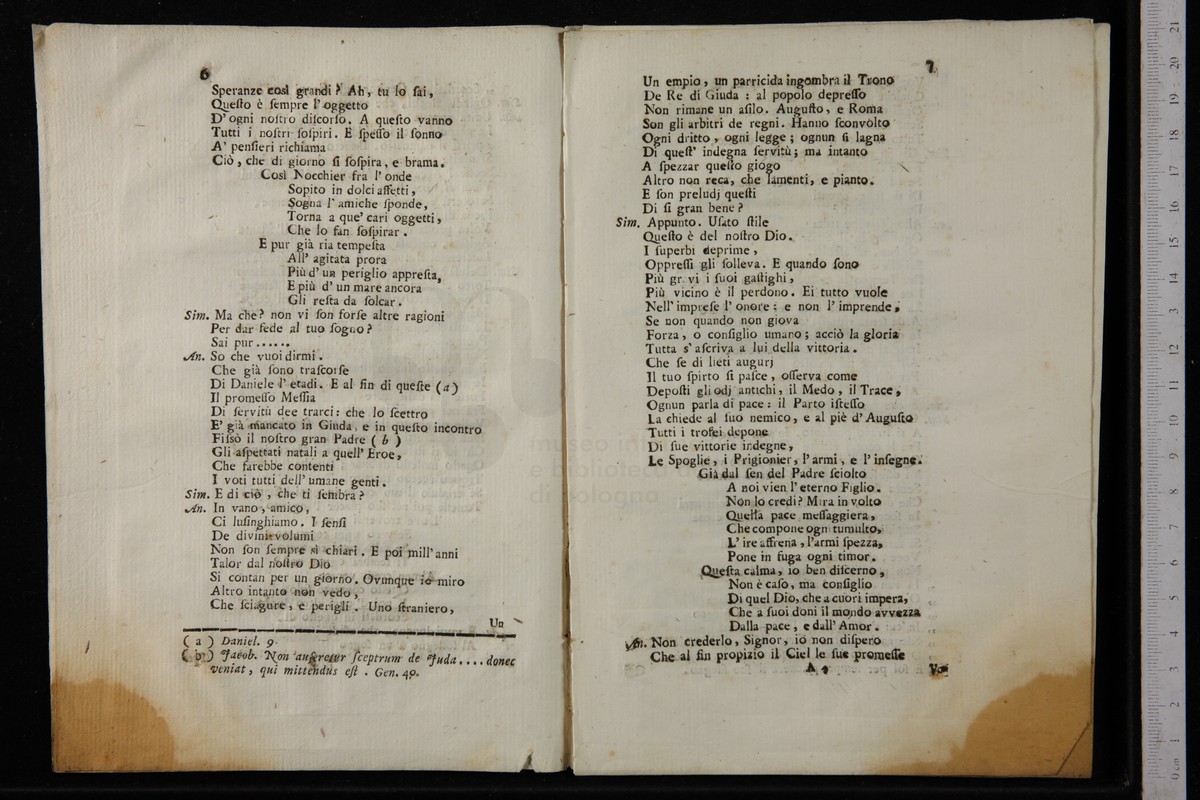 6
Speranze così grandi? Ah, tu lo ſai,
Queſto è ſempre l'oggetto
D'ogni noſtro diſcorſo. A queſto vanno
Tutti i noſtri ſoſpiri. E ſpeſſo il ſonno
A' penſieri richiama
Ciò, che di giorno ſi ſoſpira, e brama.
Così Nocchier fra l'onde
Sopito in dolci affetti,
Sogna l'amiche ſponde,
Torna a que' cari oggetti,
Che lo fan ſoſpirar.
E pur già ria tempeſta
All' agitata prora
Più d' un periglio appreſta,
E più d' un mare ancora
Gli reſta da ſolcar.
Sim. Ma che? non vi ſon forſe altre ragioni
Per dar fede al tuo ſogno?
Sai pur......
An. So che vuoi dirmi.
Che già ſono traſcorſe
Di Daniele l' etadi. E al fin di queſte (a)
Il promeſſo Meſſia
Di ſervitù dee trarci: che lo ſcettro
E' già mancato in Giuda, e in queſto incontro
Fiſsò il noſtro gran Padre ( b )
Gli aſpettati natali a quell' Eroe,
Che farebbe contenti
I voti tutti dell' umane genti.
Sim. E di ciò, che ti ſembra?
An. In vano, amico,
Ci luſinghiamo. I ſenſi
De divini volumi
Non ſon ſempre sì chiari. E poi mill' anni
Talor dal noſtro Dio
Si contan per un giorno. Ovunque io miro
Altro intanto non vedo,
Che ſciagure, e perigli. Uno ſtraniero,
Un
( a ) Daniel. 9.
( b ) Jacob. Non auferetur ſceptrum de Juda....donec
veniat, qui mittendus eſt. Gen. 49.
7
Un empio, un parricida ingombra il Trono
De Re di Giuda: al popolo depreſſo
Non rimane un aſilo. Auguſto, e Roma
Son gli arbitri de regni. Hanno ſconvolto
Ogni dritto, ogni legge; ognun ſi lagna
Di queſt' indegna ſervitù; ma intanto
A ſpezzar queſto giogo
Altro non reca, che lamenti, e pianto.
E ſon preludj queſti
Di ſi gran bene?
Sim. Appunto. Uſato ſtile
Queſto è del noſtro Dio.
I ſuperbi deprime,
Oppreſſi gli ſolleva. E quando ſono
Più gr vi i ſuoi gaſtighi,
Più vicino è il perdono. Ei tutto vuole
Nell' impreſe l' onore: e non l' imprende,
Se non quando non giova
Forza, o conſiglio umano; acciò la gloria
Tutta s' aſcriva a lui della vittoria.
Che ſe di lieti augurj
Il tuo ſpirto ſi paſce, oſſerva come
Depoſti gli odj antichi, il Medo, il Trace,
Ognun parla di pace: il Parto iſteſſo
La chiede al ſuo nemico, e al piè d' Auguſto
Tutti i trofei depone
Di ſue vittorie indegne,
Le Spoglie, i Prigionier, l'armi, e l' inſegne.
Già dal ſen del Padre ſciolto
A noi vien l' eterno Figlio.
Non lo credi? Mira in volto
Quella pace meſſaggiera,
Che compone ogni tumulto,
L' ire affrena, l'armi ſpezza,
Pone in fuga ogni timor.
Queſta calma, io ben diſcerno,
Non è caſo, ma conſiglio
Di quel Dio, che a cuori impera,
Che a ſuoi doni il mondo avvezza
Dalla pace, e dall' Amor.
An. Non crederlo, Signor, io non diſpero
Che al fin propizio il Ciel le ſue promeſſe
A 4